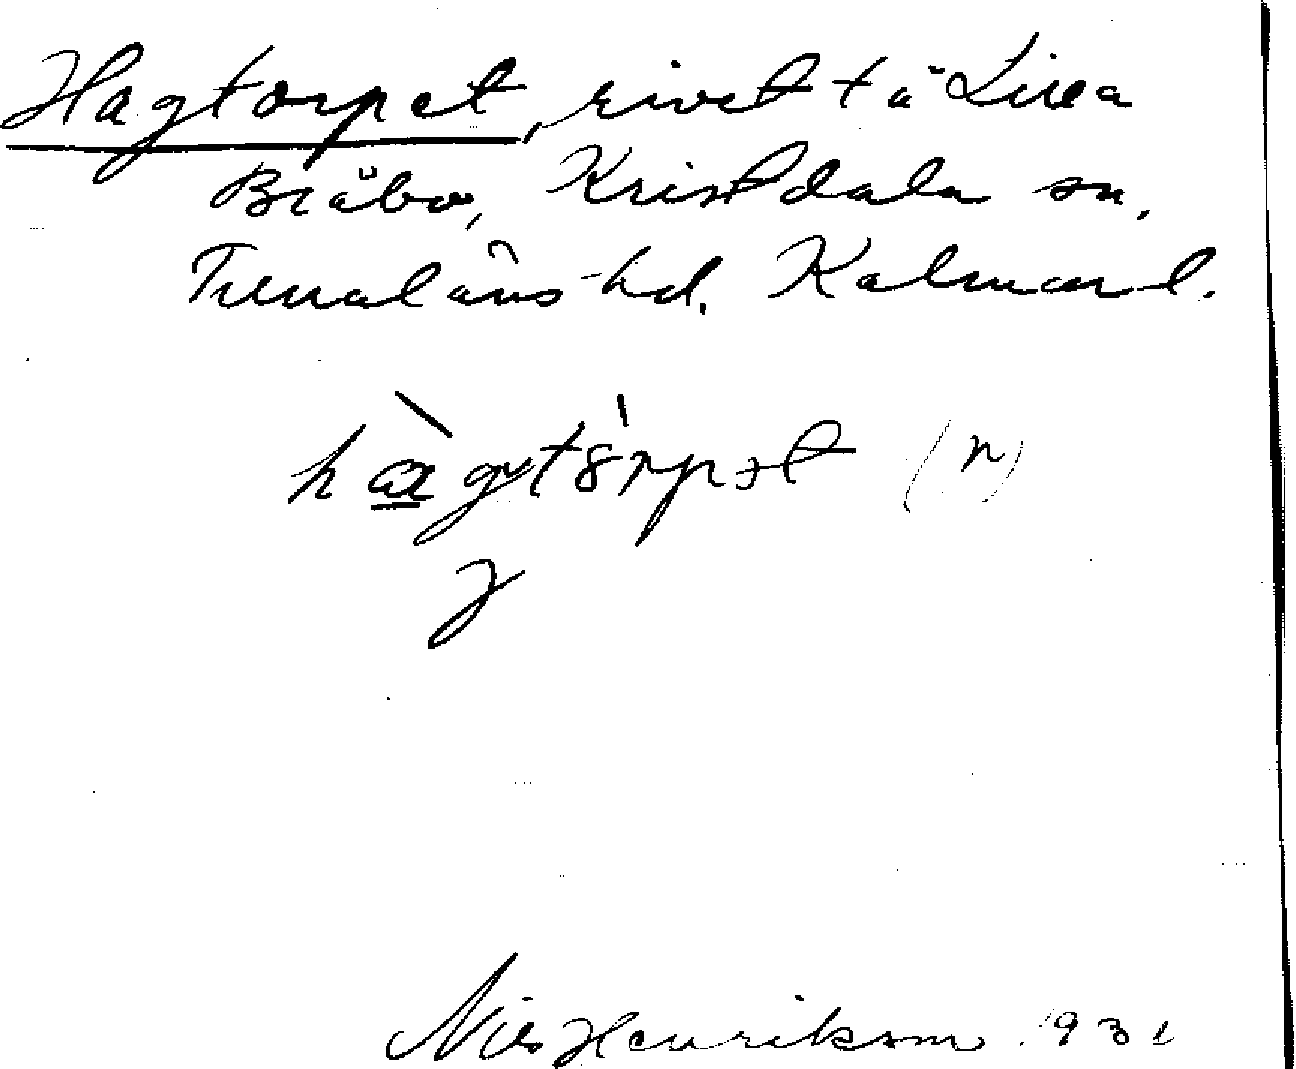 Hagtorpet, rivet t å Lilla
Bråbo, Kristdala sn,
Tunaläns hd. Kalmar l.
(n)
Nils Henrikson 1931